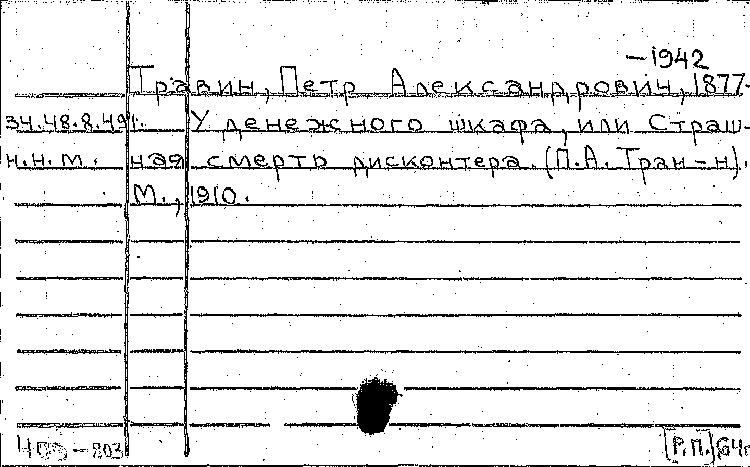 —1942
Травин, Петр Александрович, 1877-
34.48.8.491. У денежного шкафа, или Страш-
н.н.м. ная смерть дисконтера. (П.А. Трав-н).
М., 1910.
[Р.П.] 64г